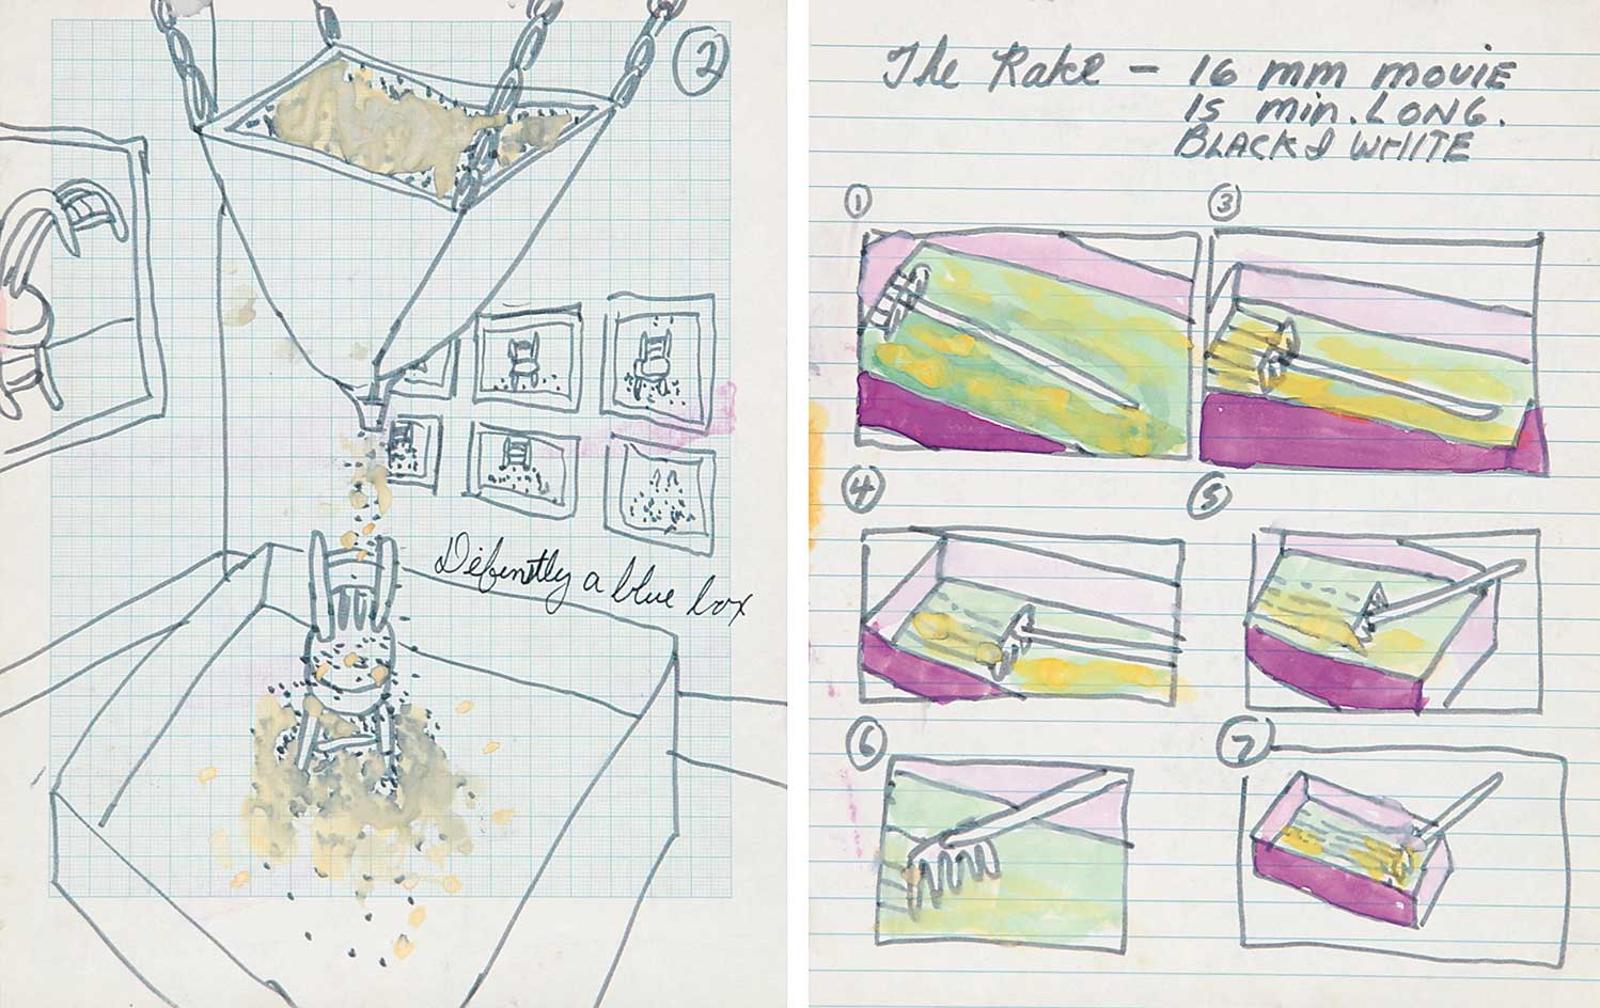 2
Definitly a blue box
The Rake – 16 mm movie
15 min. LONG.
BLACK & WHITE
1
3
4
5
6
7